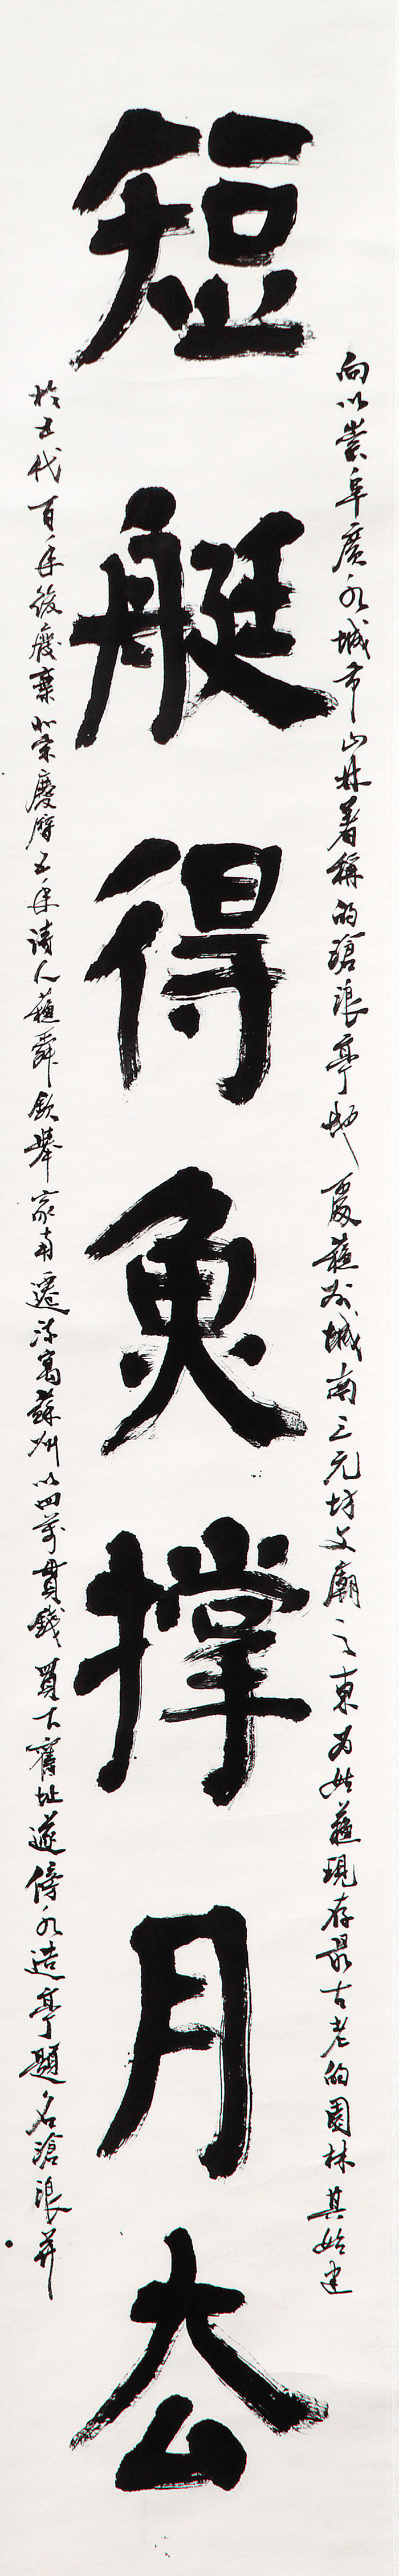 短艇得魚撑月厺
向以崇阜廣水城市山林著稱的滄浪亭地處蘇州城南三元坊文廟之東为姑蘇現存最古老的園林其始建
於五代百年後廢棄北宋慶曆五年詩人蘇舜欽舉家南遷流寓蘇州以四萬貫錢買下舊址遂傍水造亭題名滄浪并